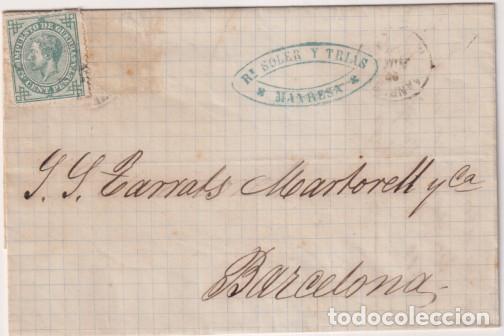 IMPUESTO DE GUERRA
5 CENT. PESETA
Rl. SOLER Y TRIAS
MANRESA
S. S. Tarrats Martorell y Ca
Barcelona
todocoleccion